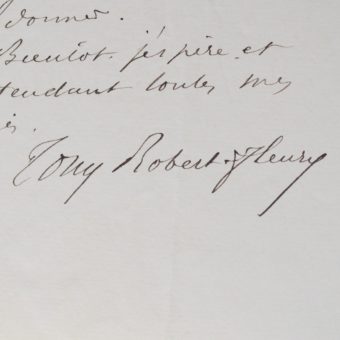 donner.
Bientôt j'espère et
tendant toutes mes
Tony Robert-Fleury